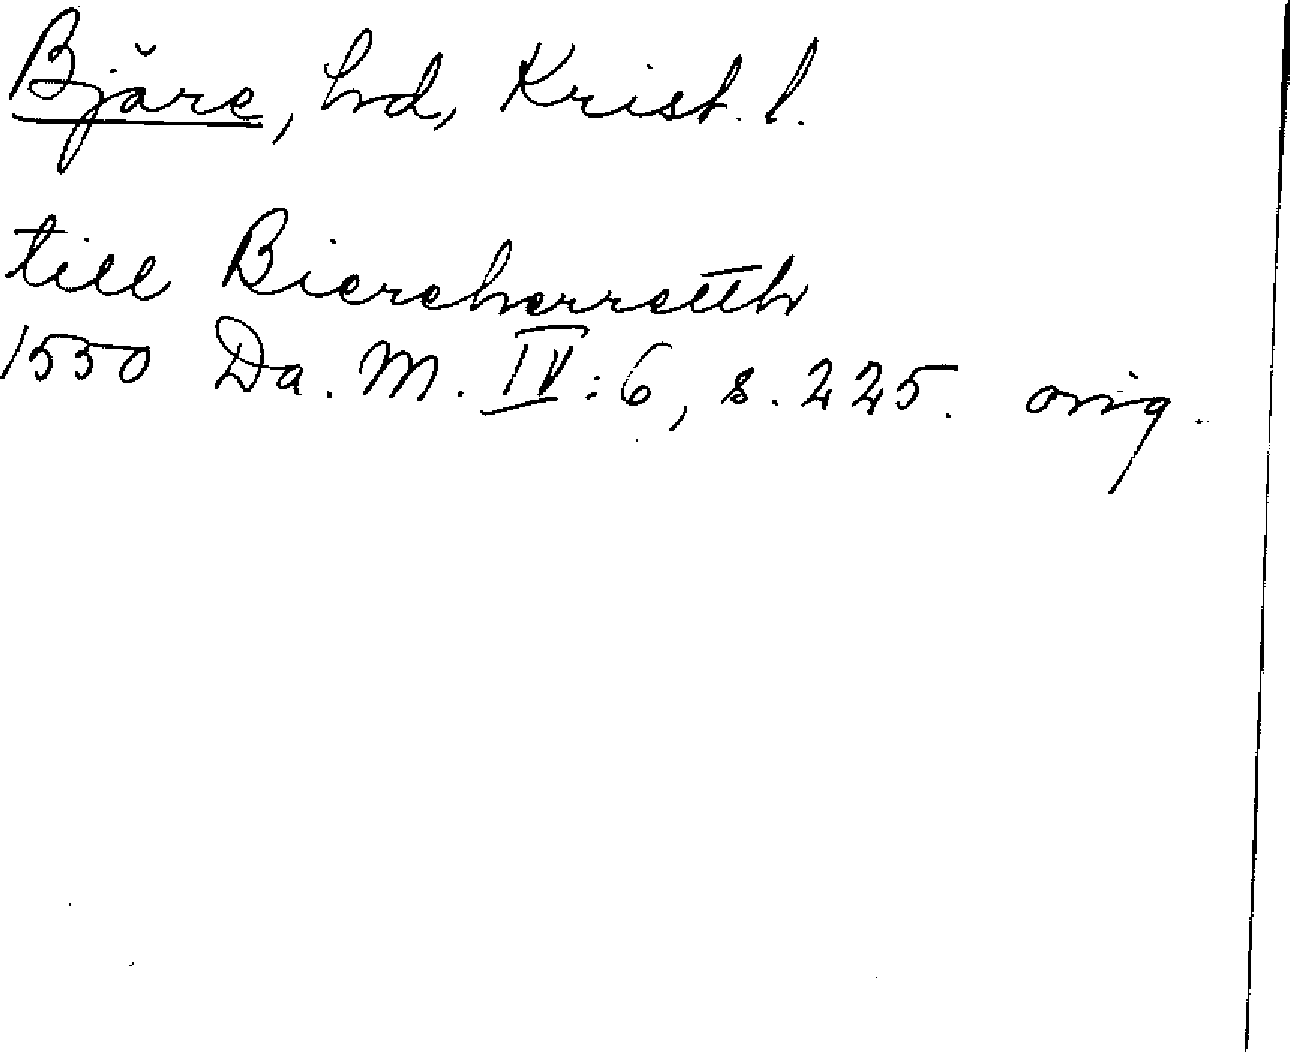 Bjäre, hd, Krist. l.
till Biereherretth
1550 Da. M. IV:6, s. 225. orig.